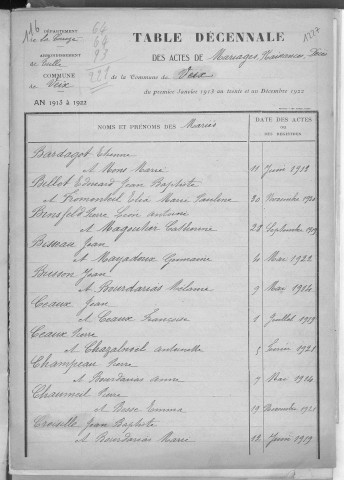 116
DÉPARTEMENT
de la Corrèze
ARRONDISSEMENT
de Tulle
COMMUNE
de Veix
AN 1913 à 1922
64
64
93
221
TABLE DÉCENNALE
DES ACTES DE Mariages, Naissances, Décès
de la Commune de Veix
du premier Janvier 1913 au trente et un Décembre 1922
NOMS ET PRÉNOMS DES Mariés
DATE DES ACTES
OU
DES REGISTRES
Bardagot Etienne
et Mons Marie 11 Juin 1912
Bellot Edouard Jean Baptiste
et Fromonteil Elia Marie 20 Novembre 1920
Pierre Léon Antoine
et Magnutier Catherine 28 Septembre 1919
Bisseau Jean
et Mayadoux Germaine 4 Mai 1922
Buisson Jean
et Bourdarias Mélanie 9 Mai 1914
Ceaux Jean
et Ceaux Françoise 1 Juillet 1919
Ceaux Pierre
et Antoinette 5 1921
Champeau Pierre
et Bourdarias Anna 7 Mai 1914
Chaumeil Pierre
et Emma 19 Novembre 1921
Jean Baptiste
et Bourdarias Marie 12 Juin 1919